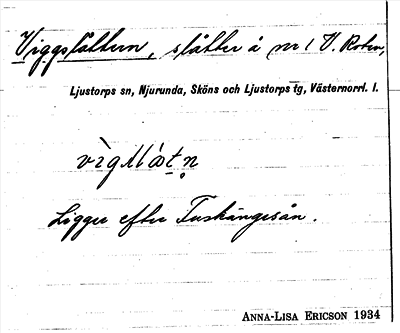 Viggslåttern, slåtter å nr 1 V. Roten,
Ljustorps sn, Njurunda, Sköns och Ljustorps tg, Västernorrl. l.
Ligger efter Tuskängesån.
ANNA-LISA ERICSON 1934